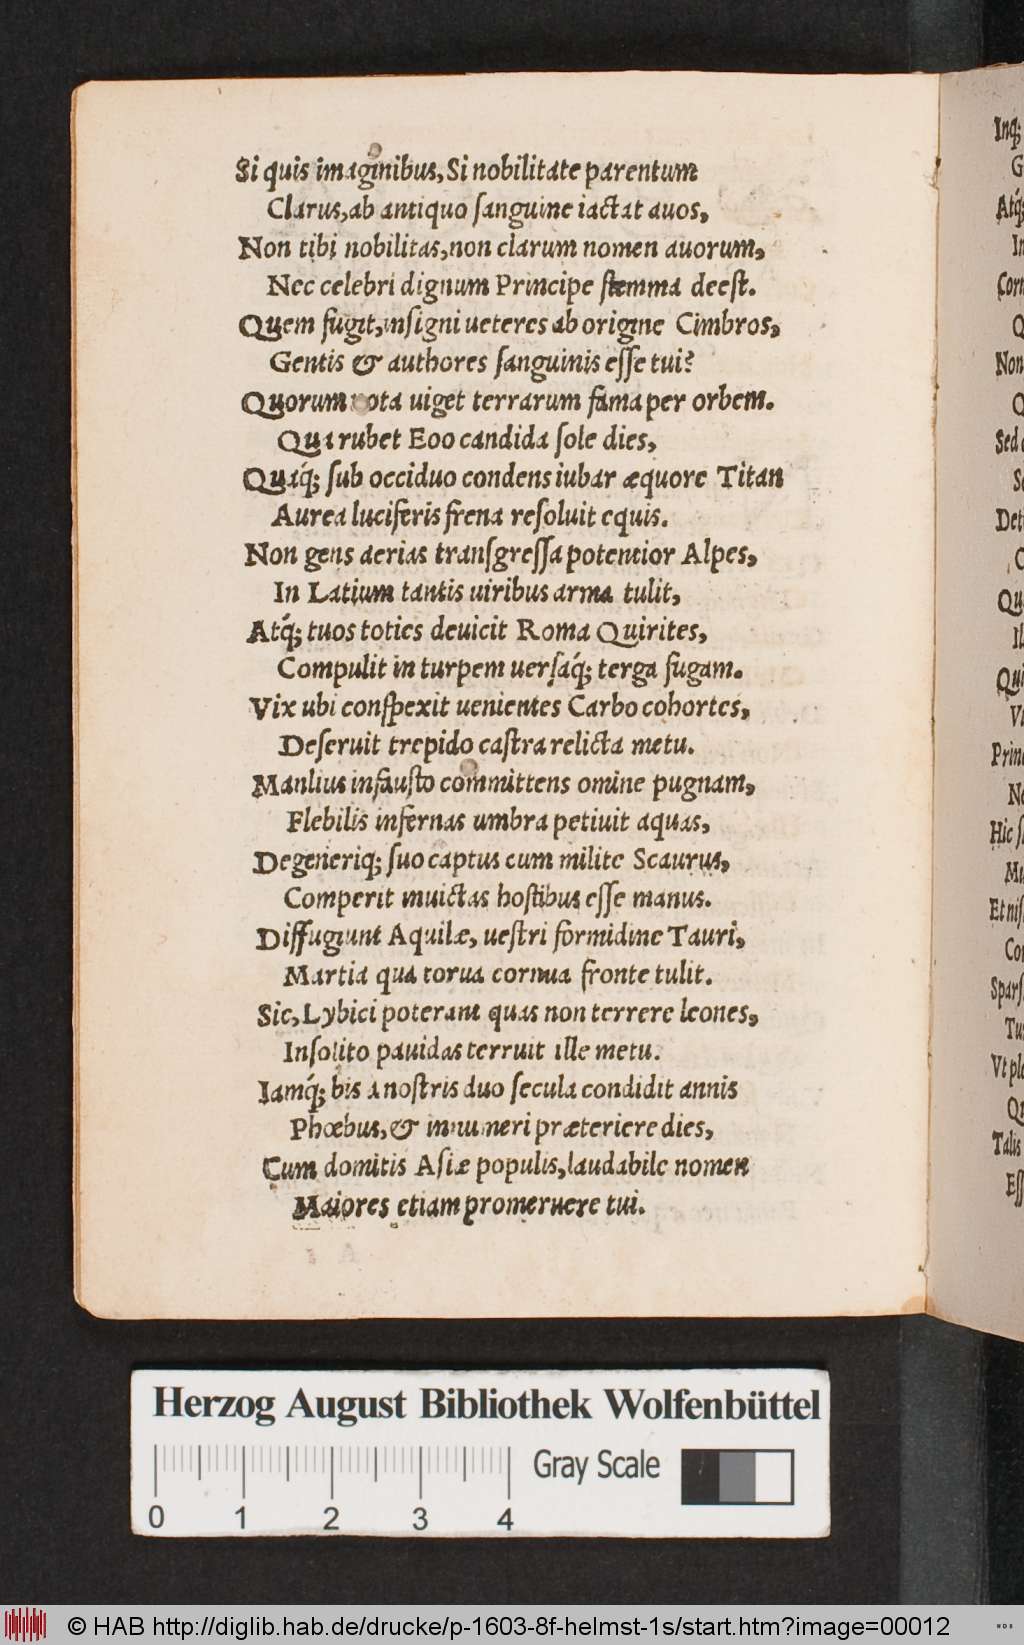 Si quis imaginibus, Si nobilitate parentum
Clarus, ab antiquo ſanguine iactat auos,
Non tibi nobilitas, non clarum nomen auorum,
Nec celebri dignum Principe ſtemma deeſt.
Quem fugit, inſigni ueteres ab origine Cimbros,
Gentis & authores ſanguinis eſſe tui?
Quorum nota uiget terrarum fama per orbem.
Qua rubet Eoo candida ſole dies,
Quaq́; ſub occiduo condens iubar æquore Titan
Aurea luciferis frena reſoluit equis.
Non gens aerias tranſgreſſa potentior Alpes,
In Latium tantis uiribus arma tulit,
Atq́; tuos toties deuicit Roma Quirites,
Compulit in turpem uerſaq́; terga fugam.
Vix ubi conſpexit uenientes Carbo cohortes,
Deſeruit trepido caſtra relicta metu.
Manlius infauſto committens omine pugnam,
Flebilis infernas umbra petiuit aquas,
Degeneriq; ſuo captus cum milite Scaurus,
Comperit inuictas hoſtibus eſſe manus.
Diffugiunt Aquilæ, ueſtri formidine Tauri,
Martia qua torua cornua fronte tulit.
Sic, Lybici poterant quas non terrere leones,
Inſolito pauidas terruit ille metu.
Iamq́; bis a noſtris duo ſecula condidit annis
Phœbus, & innumeri præteriere dies,
Cum domitis Aſiæ populis, laudabile nomen
Maiores etiam promeruere tui.
Inq́;
G
Atq́;
In
Corn
Q
Non
Q
Sed
Se
Det
C
Qu
Il
Qui
Vt
Prin
Ne
Hic ſ
Mu
Et niſ
Cor
Sparſ
Tu
Vt pl
Qu
Talis
Eſſ
Herzog August Bibliothek Wolfenbüttel
Gray Scale
0 1 2 3 4
© HAB http://diglib.hab.de/drucke/p-1603-8f-helmst-1s/start.htm?image=00012